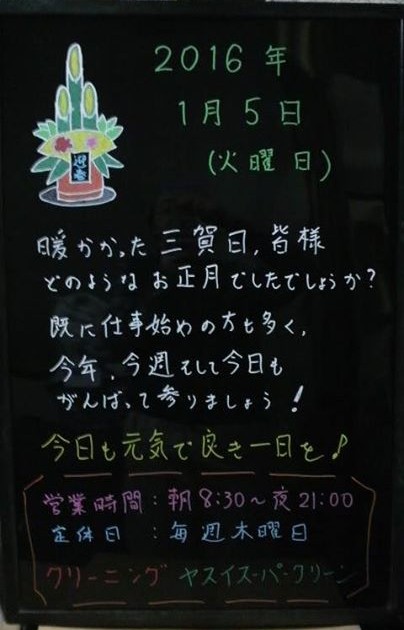 2016年
1月5日
(火曜日)
迎春
暖かかった三賀日、皆様
どのようなお正月でしたでしょうか?
既に仕事始めの方も多く、
今年、今週そして今日も
がんばって参りましょう!
今日も元気で良き一日を♪
営業時間:朝8:30〜夜21:00
定休日:毎週木曜日
クリーニング ヤスイスーパークリーン